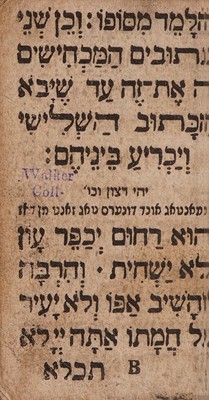 הלמד מסופו: וכן שני
כתובים המכחישים
זה את־זה עד שיבא
הכתוב השלישי
ויכריע ביניהם:
Walker
Coll-
יהי רצון וכו׳
מאנטאג אונד דונערס טאג זאגט מן דאז
הוא רחום יכפר עון
לא ישחית · והרבה
להשיב אפו ולא יעיר
כל חמתו אתה ייָ לא
B תכלא